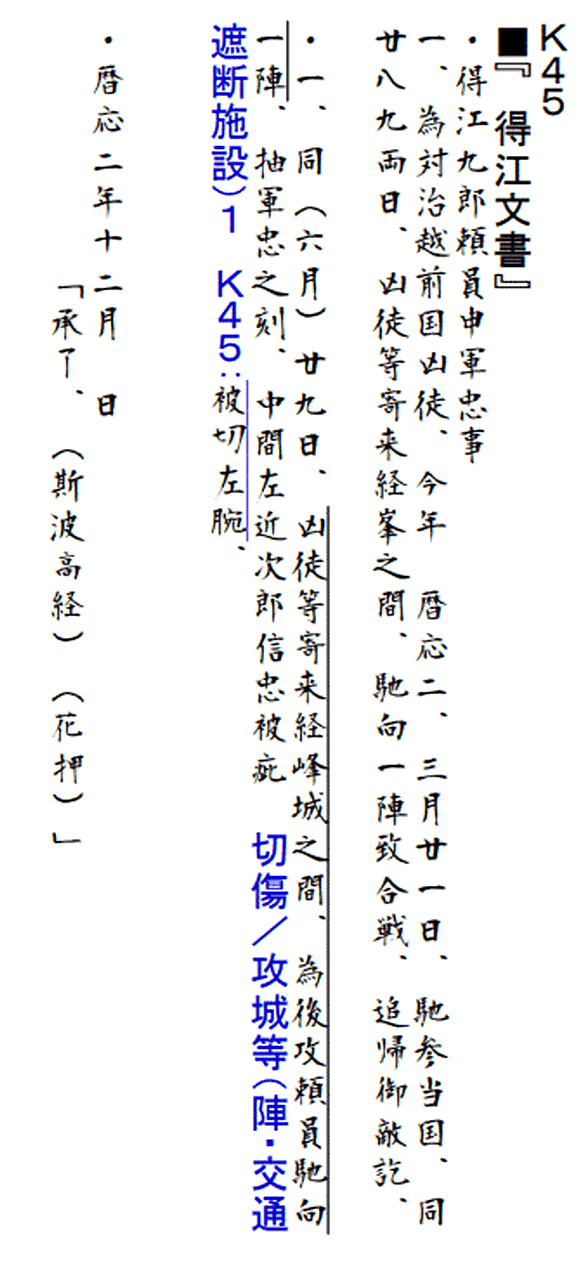 K45
■『 得江文書』
・得江九郎頼員申軍忠事
一、為対治越前国凶徒、今年 暦応二、三月廿一日、馳参当国、同
廿八九両日、凶徒等寄来経峯之間、馳向一陣致合戦、追帰御敵訖、
・一、同（六月）廿九日、凶徒等寄来経峰城之間、為後攻頼員馳向
一陣、抽軍忠之刻、中間左近次郎信忠被疵 切傷／攻城等（陣・交通
遮断施設）1 K45：被切左腕、
・暦応二年十二月 日
「承了、（斯波高経）（花押）」